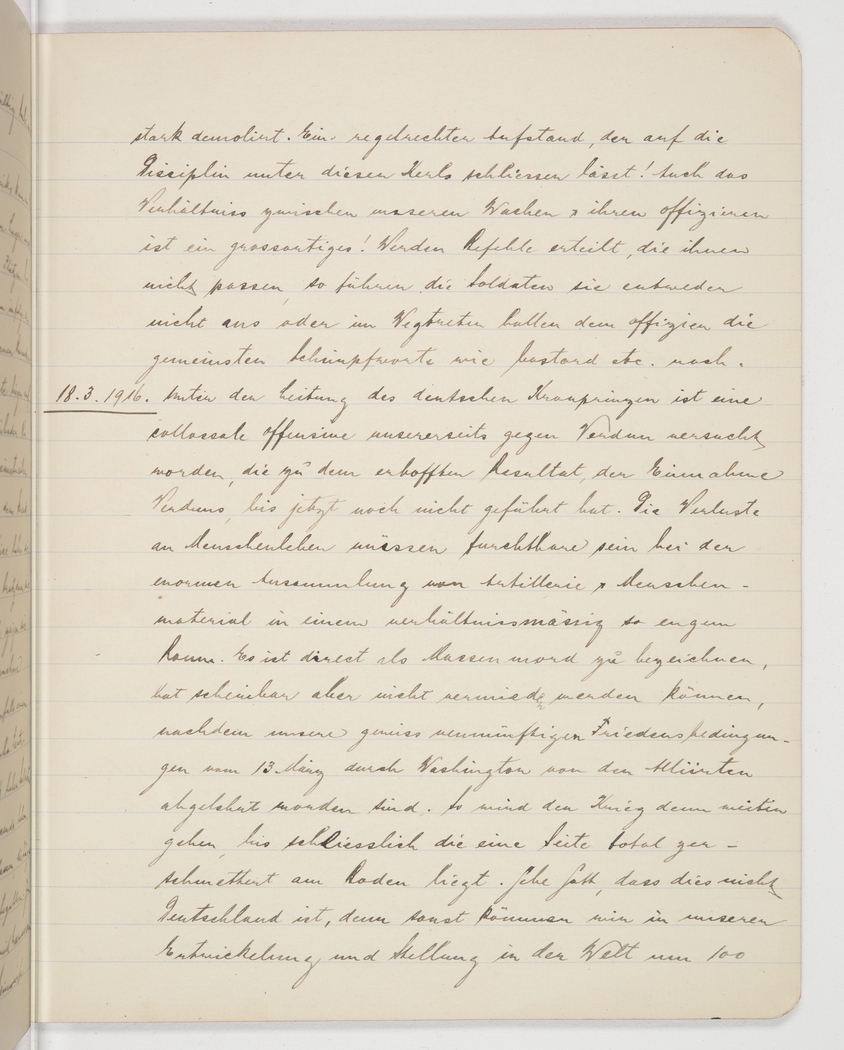 stark demoliert. Ein regelrechter Aufstand, der auf die
Disciplin unter diesen Kerls schliessen lässt! Auch das
Verhältniss zwischen unseren Wachen & ihren Offizieren
ist ein grossartiges! Werden Befehle erteilt, die ihnen
nicht passen, so führen die Soldaten sie entweder
nicht aus oder im Wegtreten ballen dem Offizier die
gemeinsten Schimpfworte wie bastard etc. nach.
18.3.1916. Unter der Leitung des deutschen Kronprinzen ist eine
collossale Offensive unsererseits gegen Verdun versucht
worden, die zu dem erhofften Resultat, der Einnahme
Verduns, bis jetzt noch nicht geführt hat. Die Verluste
an Menschenleben müssen furchtbare sein bei der
enormen Ansammlung von Artillerie & Menschen-
material in einem verhältnissmässig so engem
Raum. Es ist direct als Massenmord zu bezeichnen,
hat scheinbar aber nicht vermied. werden können,
nachdem unsere gewiss vernünftigen Friedensbedingun-
gen vom 13 März durch Washington von den Alliirten
abgelehnt worden sind. So wird der Krieg denn weiter
gehen, bis schliesslich die eine Seite total zer-
schmettert am Boden liegt. Gebe Gott, dass dies nicht
Deutschland ist, denn sonst können wir in unserer
Entwickelung und Stellung in der Welt um 100